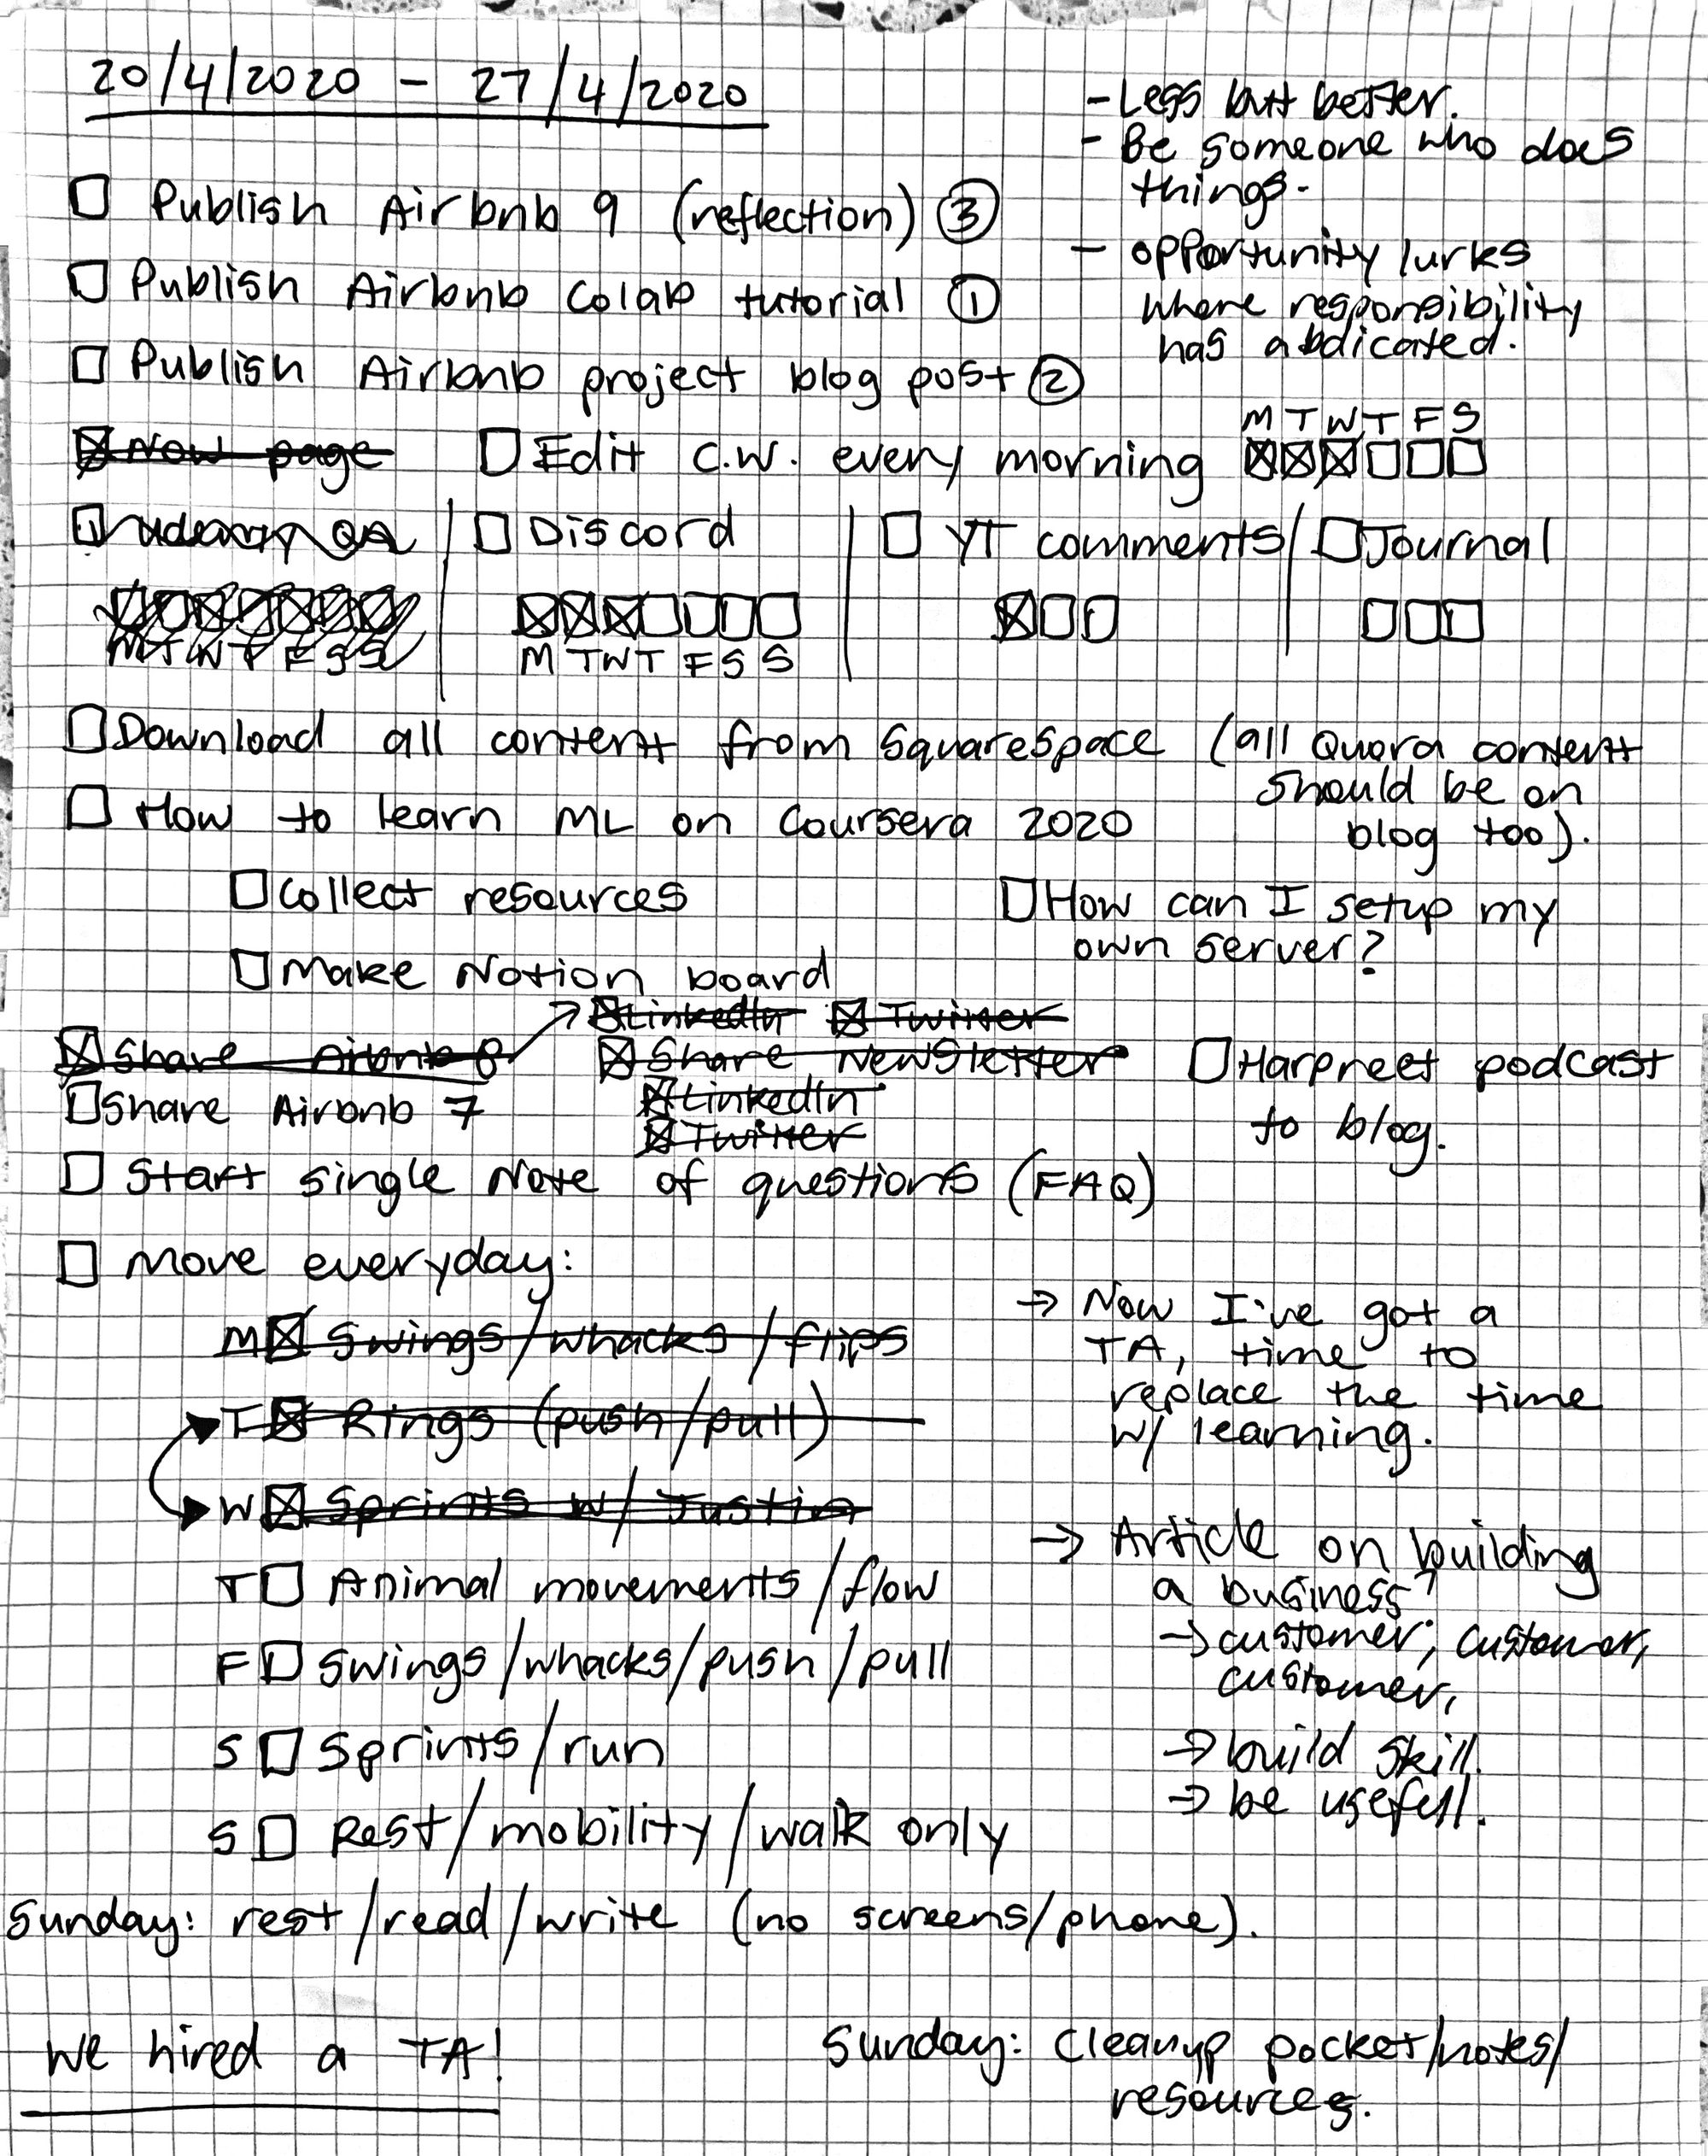 20/4/2020 - 27/4/2020
- Less but better.
- Be someone who does
things.
- opportunity lurks
where responsibility
has abdicated.
Publish Airbnb 9 (reflection) 3
Publish Airbnb Colab tutorial 1
Publish Airbnb project blog post 2
Now page
Edit C.W. every morning
M T W T F S
Udemy QA
M T W T F S S
Discord
M T W T F S S
YT comments
Journal
Download all content from Squarespace (all Quora content
should be on
blog too).
How to learn ML on Coursera 2020
Collect resources
Make Notion board
How can I setup my
own server?
Share Airbnb 8
LinkedIn Twitter
Share Airbnb 7
Share Newsletter
LinkedIn
Twitter
Harpreet podcast
to blog.
Start single Note of questions (FAQ)
Move everyday:
M Swings/whacks/flips
T Rings (push/pull)
W Sprints w/ Justin
T Animal movements/flow
F Swings/whacks/push/pull
S Sprints/run
S Rest/mobility/walk only
→ Now I've got a
TA, time to
replace the time
w/ learning.
→ Article on building
a business?
→ customer, customer,
customer,
→ build skill.
→ be usefull.
Sunday: rest/read/write (no screens/phone).
We hired a TA!
Sunday: Cleanup pocket/notes/
resources.